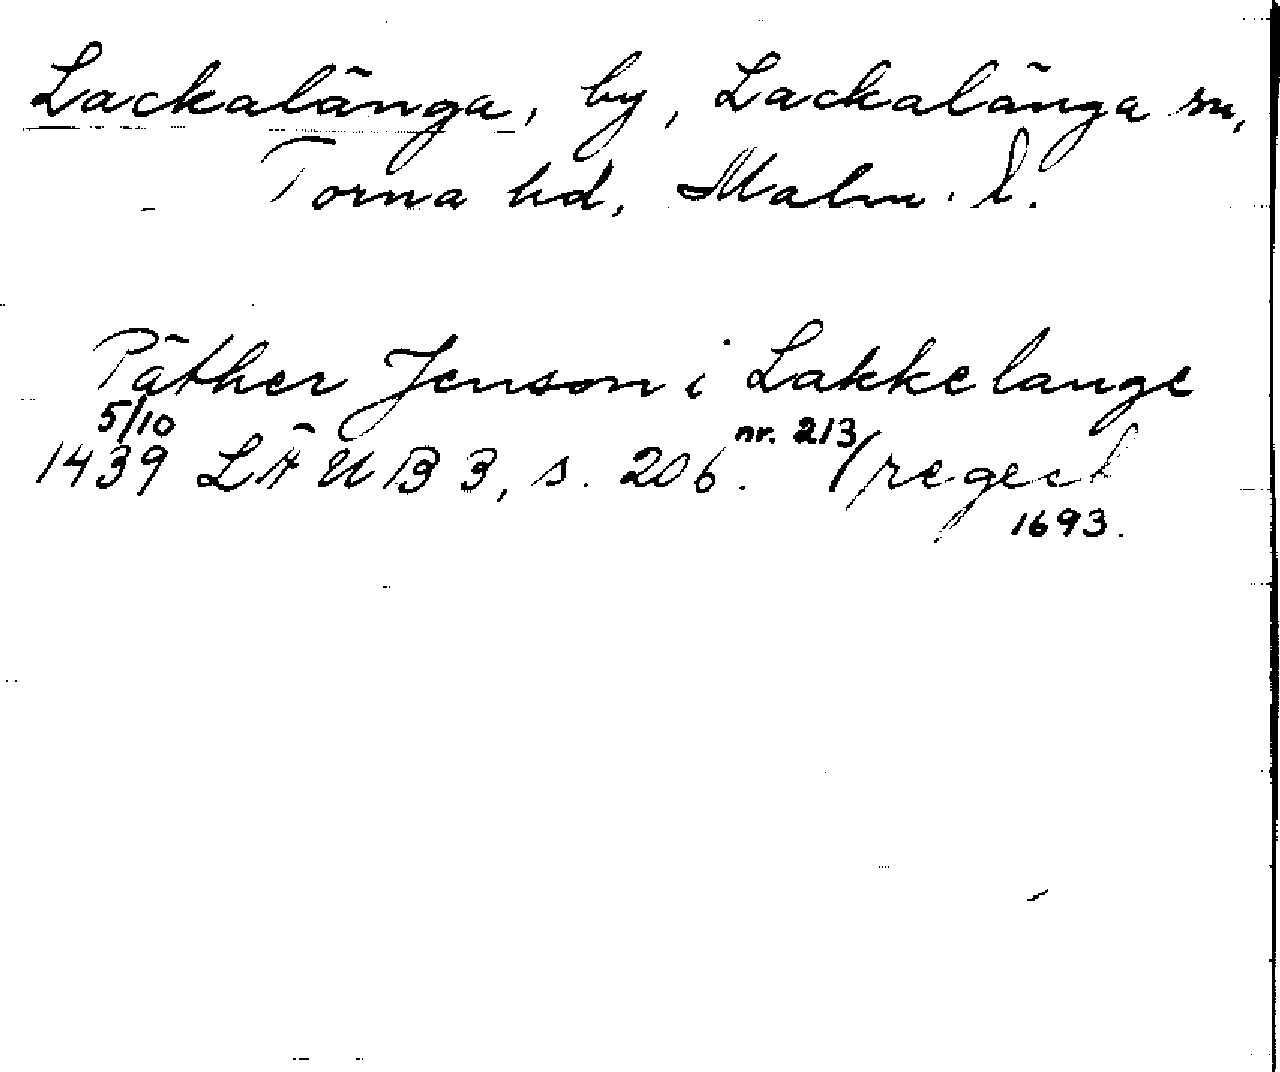 Lackalänga, by, Lackalänga sn,
Torna hd, Malm. l.
Päther Jenson i Lakkelange
5/10
1439 LÄUB 3, s. 206. nr. 213 (regest
1693.